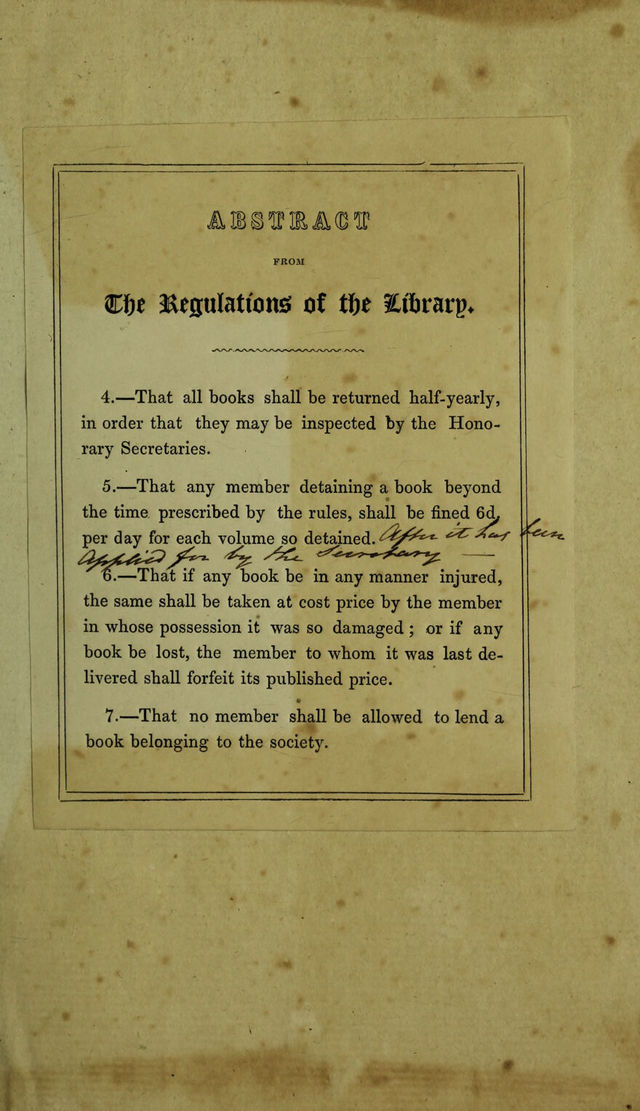 ABSTRACT
FROM
The Regulations of the Library.
4.—That all books shall be returned half-yearly,
in order that they may be inspected by the Hono-
rary Secretaries.
5.—That any member detaining a book beyond
the time prescribed by the rules, shall be fined 6d.
per day for each volume so detained. After it has been
Applied for by the Secretary —
6.—That if any book be in any manner injured,
the same shall be taken at cost price by the member
in whose possession it was so damaged; or if any
book be lost, the member to whom it was last de-
livered shall forfeit its published price.
7.—That no member shall be allowed to lend a
book belonging to the society.